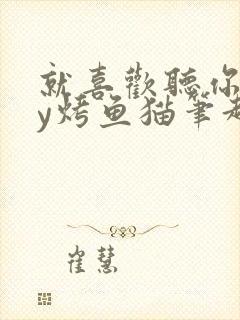 就喜歡聽你
y烤鱼猫筆趣
崔慧